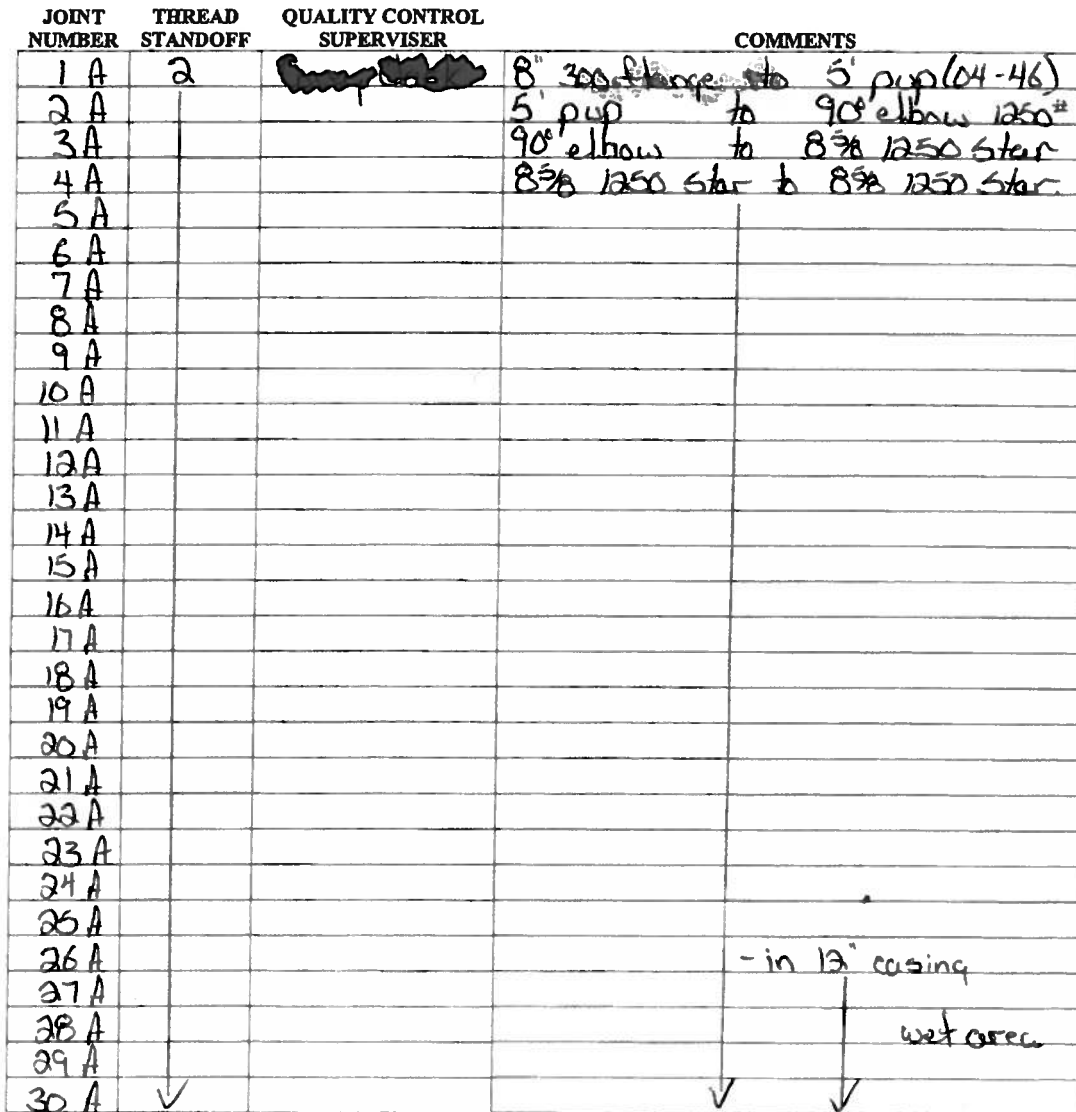 JOINT NUMBER THREAD STANDOFF QUALITY CONTROL SUPERVISER COMMENTS
1 A 2 8" 300 flange to 5' pup (04-46)
2 A 5' pup to 90° elbow 1250#
3 A 90° elbow to 8 5/8 1250 Star
4 A 8 5/8 1250 Star to 8 5/8 1250 Star.
5 A
6 A
7 A
8 A
9 A
10 A
11 A
12 A
13 A
14 A
15 A
16 A
17 A
18 A
19 A
20 A
21 A
22 A
23 A
24 A
25 A
26 A - in 12" casing
27 A
28 A wet area
29 A
30 A